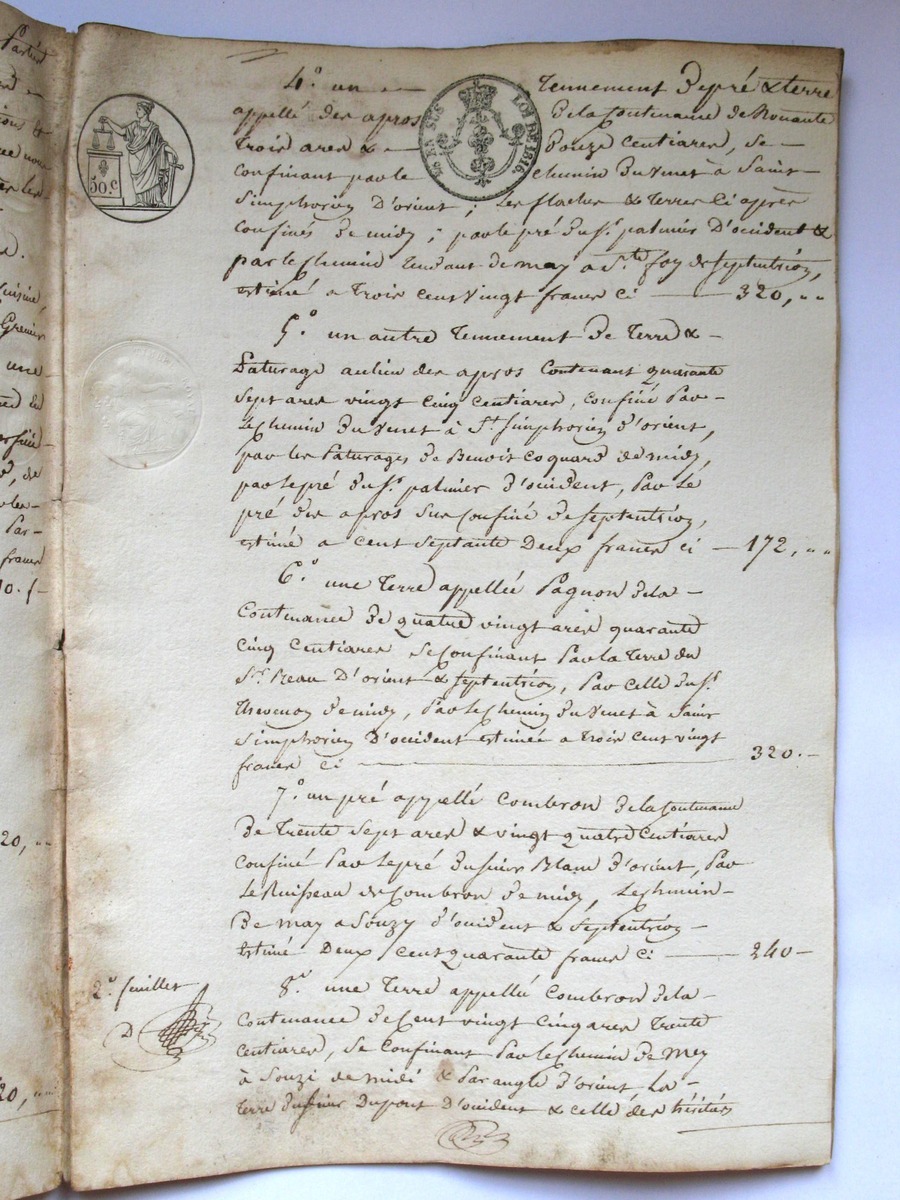 4.° un — tennement De pré & terre
appellé des apros De la Contenance de Nonante
trois ares & — Douze Centiares, se
confinant par le chemin Du Venet à Saint
Simphorien D'orient; les flaches & terres Ci après
confinés De midy; par le pré Du Sr. palmier D'occident &
par le Chemin tendant de may a Ste foy de Septentrion,
estimé a trois Cent vingt francs Ci — 320, „ „
5.° un autre tennement De terre &
Paturage au lieu des apros Contenant quarante
Sept ares vingt Cinq Centiares, confiné Par
le Chemin Du Venet à St. Simphorien D'orient,
par les Paturages De Benoit Coquard de midy,
par le pré Du Sr. palmier D'occident, Par le
pré des apros Sus Confiné De Septentrion,
estimé a Cent Septante Deux francs Ci — 172, „ „
6.° une terre appellée Pagnon De la
Contenance De quatre vingt ares quarante
Cinq Centiares Se Confinant Par la terre du
Sr. D'orient & Septentrion, Par Celle Du Sr.
thevenon De midy, Par le Chemin Du Venet à Saint
Simphorien D'occident estimée a trois Cent vingt
francs Ci — 320. —
7.° un pré appellé Combron De la Contenance
De trente Sept ares & vingt quatre Centiares
confiné Par le pré Du sieur Blanc D'orient, Par
le Ruisseau de Combron De midy, le Chemin
De may a Souzy D'occident & Septentrion
Estimé Deux Cent quarante francs Ci — 240 —
8.° une terre appellée Combron De la
Contenance De Cent vingt Cinq ares trente
Centiares, Se Confinant Par le Chemin De mey
à Souzi de midi & Par angle D'orient la
terre Du sieur Dupont D'occident & celle des héritiés
2.e feuillet
D
50.C
LOI DE 1816.